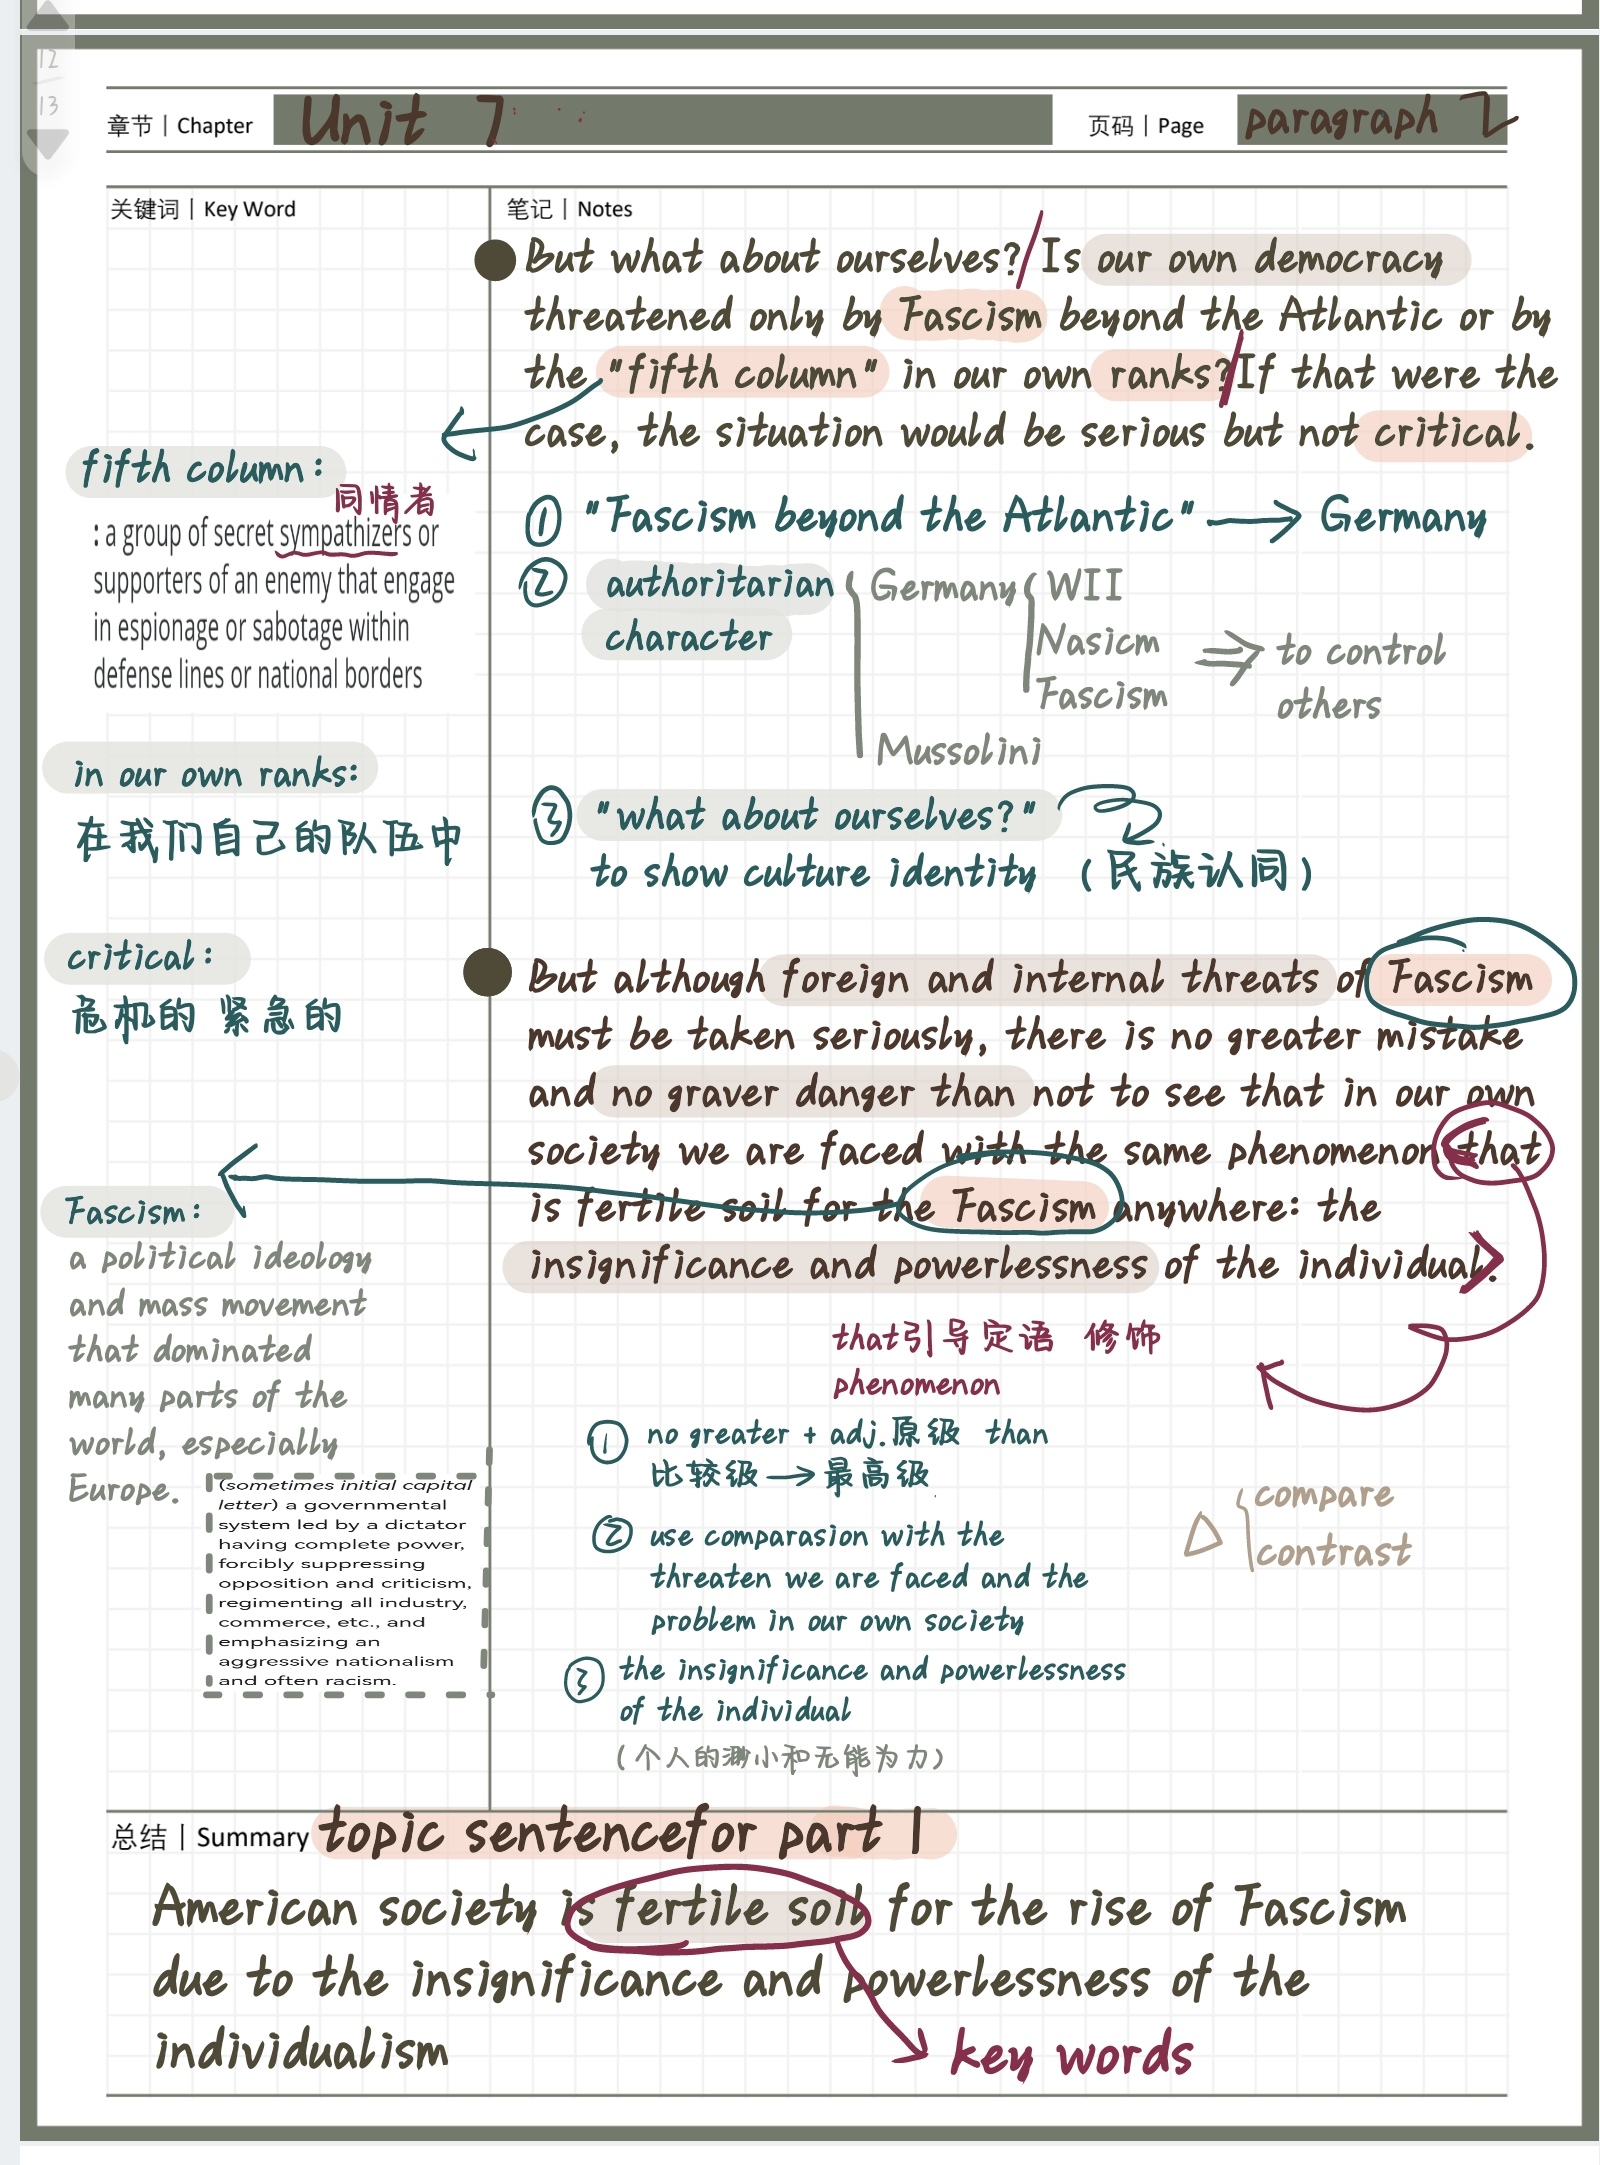 12
13
章节 | Chapter Unit 7 页码 | Page paragraph 2
关键词 | Key Word
笔记 | Notes
But what about ourselves? Is our own democracy
threatened only by Fascism beyond the Atlantic or by
the "fifth column" in our own ranks? If that were the
case, the situation would be serious but not critical.
fifth column:
同情者
: a group of secret sympathizers or
supporters of an enemy that engage
in espionage or sabotage within
defense lines or national borders
① "Fascism beyond the Atlantic" → Germany
② authoritarian
character
Germany
WII
Nasicm
Fascism
⇒ to control
others
Mussolini
in our own ranks:
在我们自己的队伍中
③ "what about ourselves?"
to show culture identity (民族认同)
critical:
危机的 紧急的
But although foreign and internal threats of Fascism
must be taken seriously, there is no greater mistake
and no graver danger than not to see that in our own
society we are faced with the same phenomenon that
is fertile soil for the Fascism anywhere: the
insignificance and powerlessness of the individual.
Fascism:
a political ideology
and mass movement
that dominated
many parts of the
world, especially
Europe.
(sometimes initial capital
letter) a governmental
system led by a dictator
having complete power,
forcibly suppressing
opposition and criticism,
regimenting all industry,
commerce, etc., and
emphasizing an
aggressive nationalism
and often racism.
that引导定语 修饰
phenomenon
① no greater + adj.原级 than
比较级 → 最高级
② use comparasion with the
threaten we are faced and the
problem in our own society
△ compare
contrast
③ the insignificance and powerlessness
of the individual
(个人的渺小和无能为力)
总结 | Summary topic sentencefor part 1
American society is fertile soil for the rise of Fascism
due to the insignificance and powerlessness of the
individualism
key words